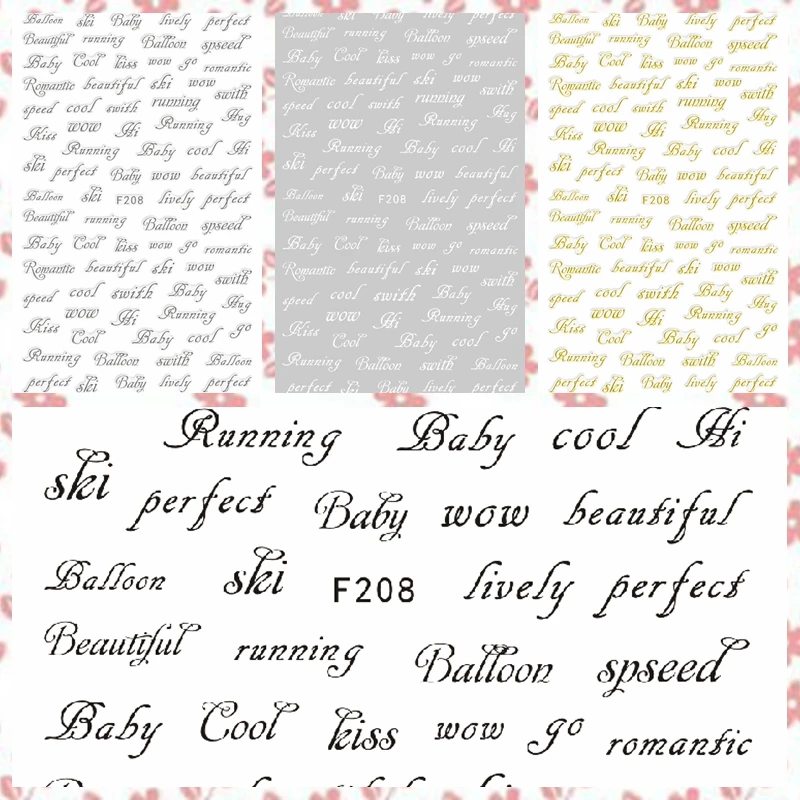 Balloon ski Baby lively perfect
Beautiful running Balloon spseed
Baby Cool kiss wow go romantic
Romantic beautiful ski wow swith
speed cool swith running Hug
Kiss wow Hi Running
Running Baby cool Hi
ski perfect Baby wow beautiful
Balloon ski F208 lively perfect
Beautiful running Balloon spseed
Baby Cool kiss wow go romantic
Romantic beautiful ski wow swith
speed cool swith Baby Hug
Kiss wow Hi Running
Cool Baby cool go
Running Balloon swith Balloon
perfect ski Baby lively perfect
Balloon ski Baby lively perfect
Beautiful running Balloon spseed
Baby Cool kiss wow go romantic
Romantic beautiful ski wow swith
speed cool swith running Hug
Kiss wow Hi Running
Running Baby cool Hi
ski perfect Baby wow beautiful
Balloon ski F208 lively perfect
Beautiful running Balloon spseed
Baby Cool kiss wow go romantic
Romantic beautiful ski wow swith
speed cool swith Baby Hug
Kiss wow Hi Running
Cool Baby cool go
Running Balloon swith Balloon
perfect ski Baby lively perfect
Balloon ski Baby lively perfect
Beautiful running Balloon spseed
Baby Cool kiss wow go romantic
Romantic beautiful ski wow swith
speed cool swith running Hug
Kiss wow Hi Running
Running Baby cool Hi
ski perfect Baby wow beautiful
Balloon ski F208 lively perfect
Beautiful running Balloon spseed
Baby Cool kiss wow go romantic
Romantic beautiful ski wow swith
speed cool swith Baby Hug
Kiss wow Hi Running
Cool Baby cool go
Running Balloon swith Balloon
perfect ski Baby lively perfect
Running Baby cool Hi
ski perfect Baby wow beautiful
Balloon ski F208 lively perfect
Beautiful running Balloon spseed
Baby Cool kiss wow go romantic